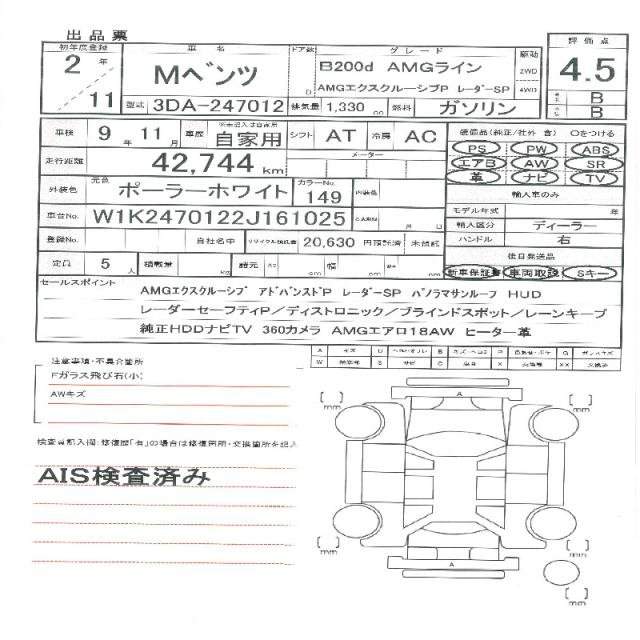 出品票
初年度登録 車名 ドア数 グレード 駆動 評価点
2年 11 Mベンツ D B200d AMGライン 2WD 4.5
AMGエクスクルーシブP レーダーSP 4WD B
型式 3DA-247012 排気量 1,330 cc 燃料 ガソリン B
車検 9年 11月 車歴 自家用 シフト AT 冷房 AC 装備品(純正/社外 含) Oをつける
PS PW ABS
走行距離 42,744 km メーター エアB AW SR
革 ナビ TV
外装色 元色 ポーラーホワイト カラーNo. 149 内装色 輸入車のみ
モデル年式 年
車台No. W1K2470122J161025 月 日 輸入区分 ディーラー
登録No. 自社名中 リサイクル預託金 20,630 円預託済 未預託 ハンドル 右
後日発送品
定員 5人 積載量 kg 諸元 長さ cm 幅 cm cm 新車保証書 車両取説 Sキー
セールスポイント
AMGエクスクルーシブ アドバンスドP レーダーSP パノラマサンルーフ HUD
レーダーセーフティP/ディストロニック/ブラインドスポット/レーンキープ
純正HDDナビTV 360カメラ AMGエアロ18AW ヒーター革
注意事項・不具合箇所
Fガラス飛び石(小)
AWキズ
検査員記入欄:修復歴「有」の場合は修復箇所・交換箇所を記入
AIS検査済み
[ ] mm
[ ] mm
A
A
[ ] mm
[ ] mm
[ ] mm